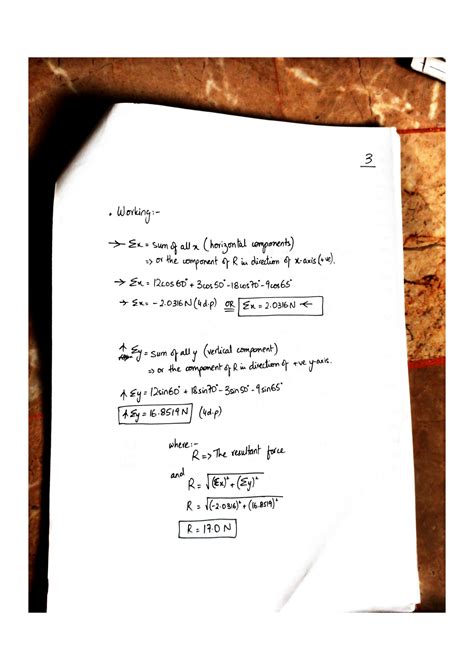 3
• Working:-
→ Σx = sum of all x (horizontal components)
⇒ or the component of R in direction of x-axis (+ve).
→ Σx = 12cos60° + 3cos50° - 18cos70° - 9cos65°
→ Σx = - 2.0316N (4d.p) OR Σx = 2.0316N ←
↑ Σy = sum of all y (vertical component)
⇒ or the component of R in direction of +ve y-axis.
↑ Σy = 12sin60° + 18sin70° - 3sin50° - 9sin65°
↑ Σy = 16.8519N (4d.p)
where:-
R ⇒ The resultant force
and
R = √(Σx)² + (Σy)²
R = √(-2.0316)² + (16.8519)²
R = 17.0 N